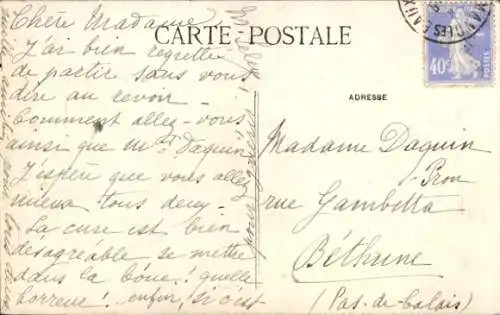 CARTE-POSTALE
ADRESSE
40c
POSTES
Chère Madame,
J'ai bien regretté
de partir sans vous
dire au revoir.
Comment allez-vous,
ainsi que Mr Daquin
J'espère que vous allez
mieux tous deux.
La cure est bien
désagréable se mettre
dans la boue! quelle
horreur! enfin, si c'est
Madame Daquin
rue Gambetta
Béthune
(Pas-de-Calais)